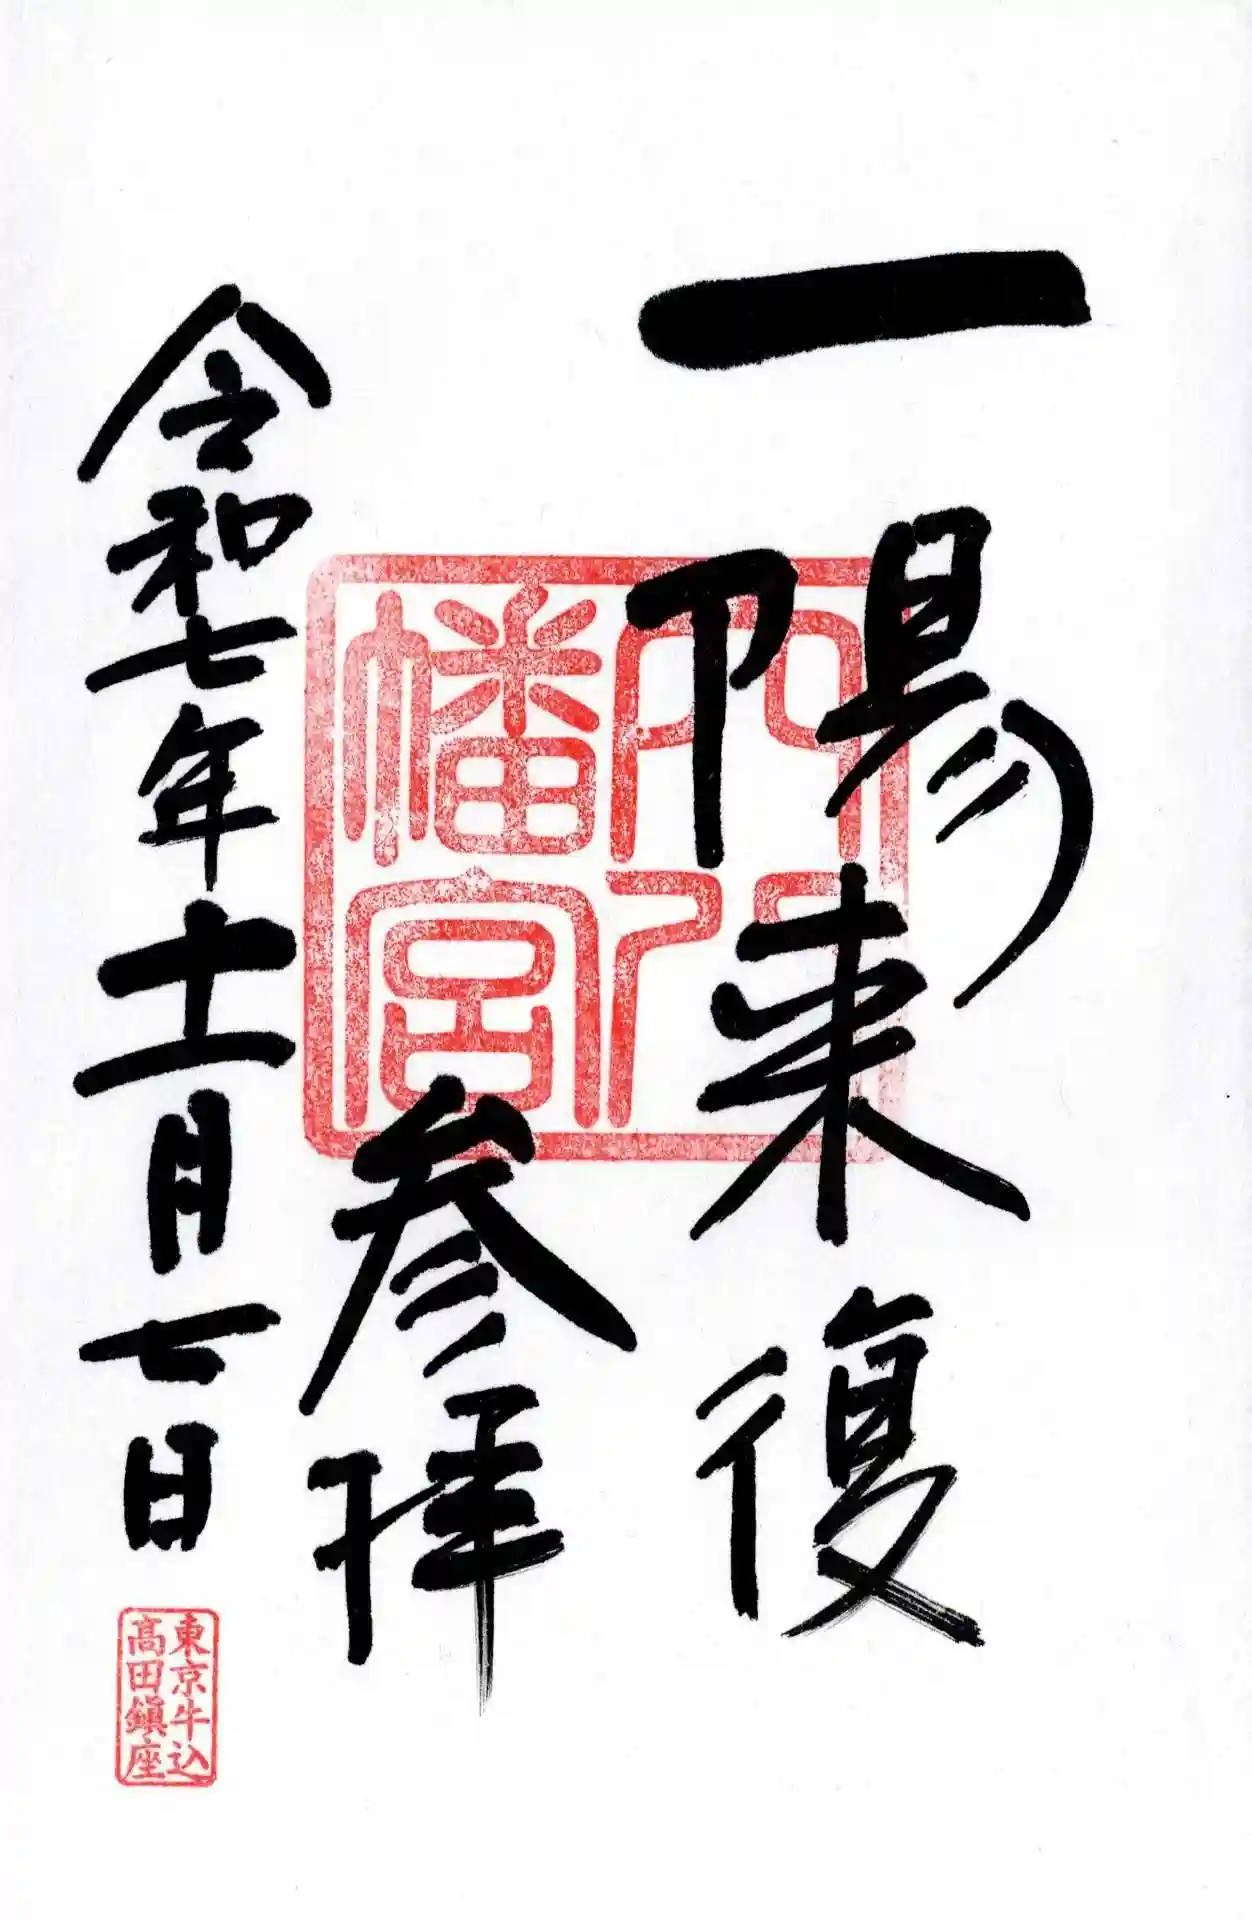 一陽来復
穴八
幡宮
参拝
令和七年十一月七日
東京牛込
髙田鎭座